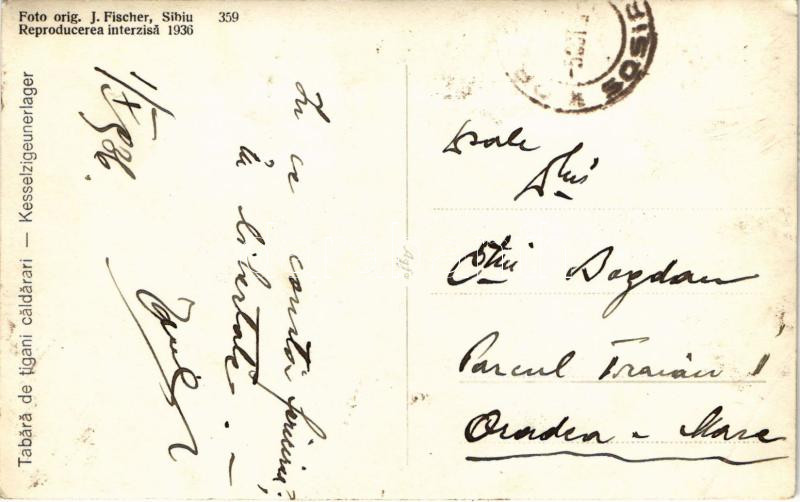 Foto orig. J. Fischer, Sibiu 359
Reproducerea interzisă 1936
Tabără de țigani căldărari — Kesselzigeunerlager
În ce constă fericirea?
în libertate. —
Dsale
Dlui
Bogdan
Parcul Traian 1
Oradea - Mare
Agfa